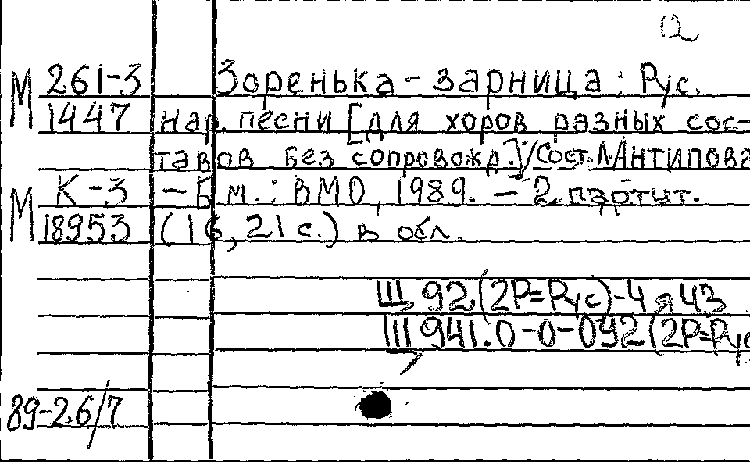 12
М 261-3 Зоренька-зарница: Рус.
1447 нар. песни [для хоров разных сос-
тавов без сопровожд.]/Сост. Л. Антипова
М К-3 - Б.м.: ВМО, 1989. - 2 партит.
18953 (16, 21 с.) в обл.
Щ 92(2Р=Рус)-4 я 43
Щ 941.0-0-092(2Р=Рус
89-26/7